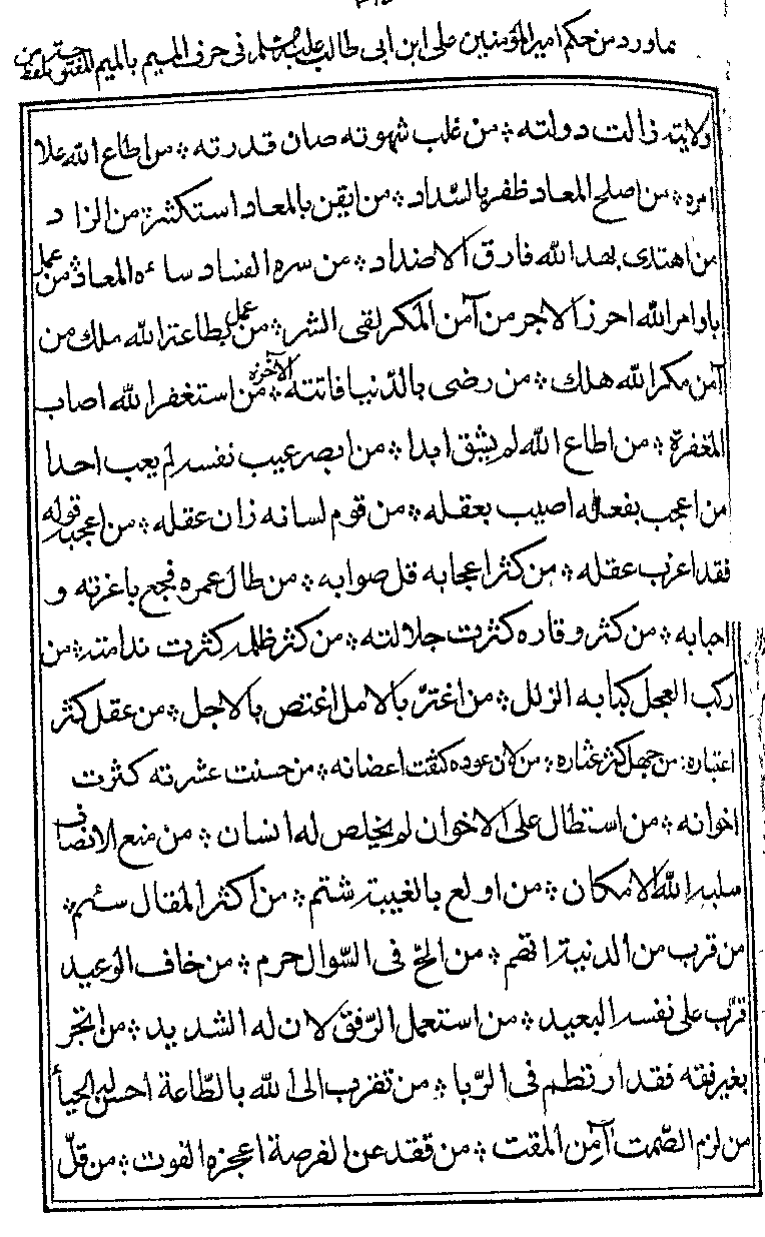 مما ورد من حكم امير المؤمنين على ابن ابى طالب عليه فى حرف الميم بالميم المفتوح بلفظ من
ولايته زالت دولته ؞ من غلب شهوته صان قدرته ؞ من اطاع الله علا
امره ؞ من اصلح المعاد ظفر بالسّداد ؞ من ايقن بالمعاد استكثر من الزاد
من اهتدى بهدى الله فارق الاضداد ؞ من سره الفساد ساءه المعاد ؞ من عمل
باوامر الله احرز الاجر من آمن المكر لقى الشر ؞ من عمل بطاعة الله ملك من
آمن مكر الله هلك ؞ من رضى بالدّنيا فاتته الآخرة ؞ من استغفر الله اصاب
المغفرة ؞ من اطاع الله لم يشق ابدا ؞ من ابصر عيب نفسه لم يعب احدا
من اعجب بفعله اصيب بعقله ؞ من قوم لسانه زان عقله ؞ من اعجبه قوله
فقد اعزب عقله ؞ من كثر اعجابه قل صوابه ؞ من طال عمره فجع باعزته و
احبابه ؞ من كثر وقاره كثرت جلالته ؞ من كثر ظلمه كثرت ندامته ؞ من
ركب العجل كبا به الزلل ؞ من اغترّ بالامل اغتص بالاجل ؞ من عقل كثر
اعتباره ؞ من جهل كثر عثاره ؞ من لان عوده كثفت اعضانه ؞ من حسنت عشرته كثرت
اخوانه ؞ من استطال على الاخوان لم يخلص له انسان ؞ من منع الانصاف
سلبه الله الامكان ؞ من اولع بالغيبة شتم ؞ من اكثر المقال سئم ؞
من قرب من الدنية اتهم ؞ من الحّ فى السّوال حرم ؞ من خاف الوعيد
قرّب على نفسه البعيد ؞ من استعمل الرّفق لان له الشديد ؞ من اتجر
بغير فقه فقد ارتطم فى الرّبا ؞ من تقرب الى الله بالطّاعة احسن له الحبأ
من لزم الصّمت آمِن المقت ؞ من فقد عن الفرصة اعجزه الفوت ؞ من قلّ